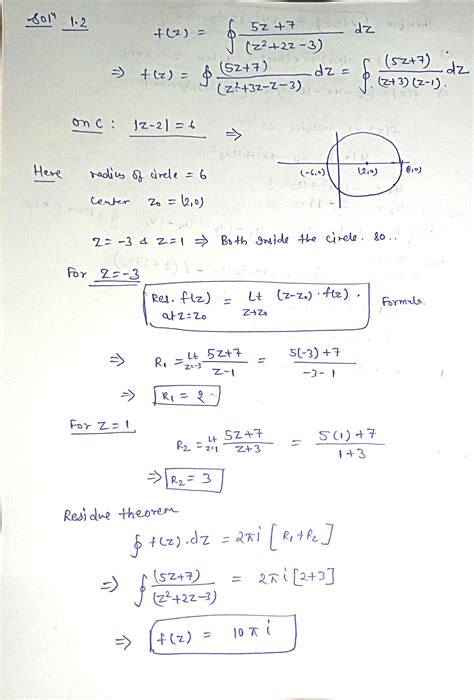 Solⁿ 1.2
f(z) = ∮ 5z+7 / (z²+2z-3) dz
⇒ f(z) = ∮ (5z+7) / (z²+3z-z-3) dz = ∮ (5z+7) / (z+3)(z-1) . dz
on C : |z-2| = 6 ⇒
(-6,0) (2,0) (8,0)
Here radius of circle = 6
Center z₀ = (2,0)
z = -3 & z = 1 ⇒ Both inside the circle. so..
For z = -3
Res. f(z) at z=z₀ = Lt z→z₀ (z-z₀) . f(z) . Formula.
⇒ R₁ = Lt z=-3 5z+7 / z-1 = 5(-3)+7 / -3-1
⇒ R₁ = 2
For z = 1
R₂ = Lt z=1 5z+7 / z+3 = 5(1)+7 / 1+3
⇒ R₂ = 3
Residue theorem
∮ f(z).dz = 2πi [R₁+R₂]
⇒ ∮ (5z+7) / (z²+2z-3) = 2πi [2+3]
⇒ f(z) = 10πi